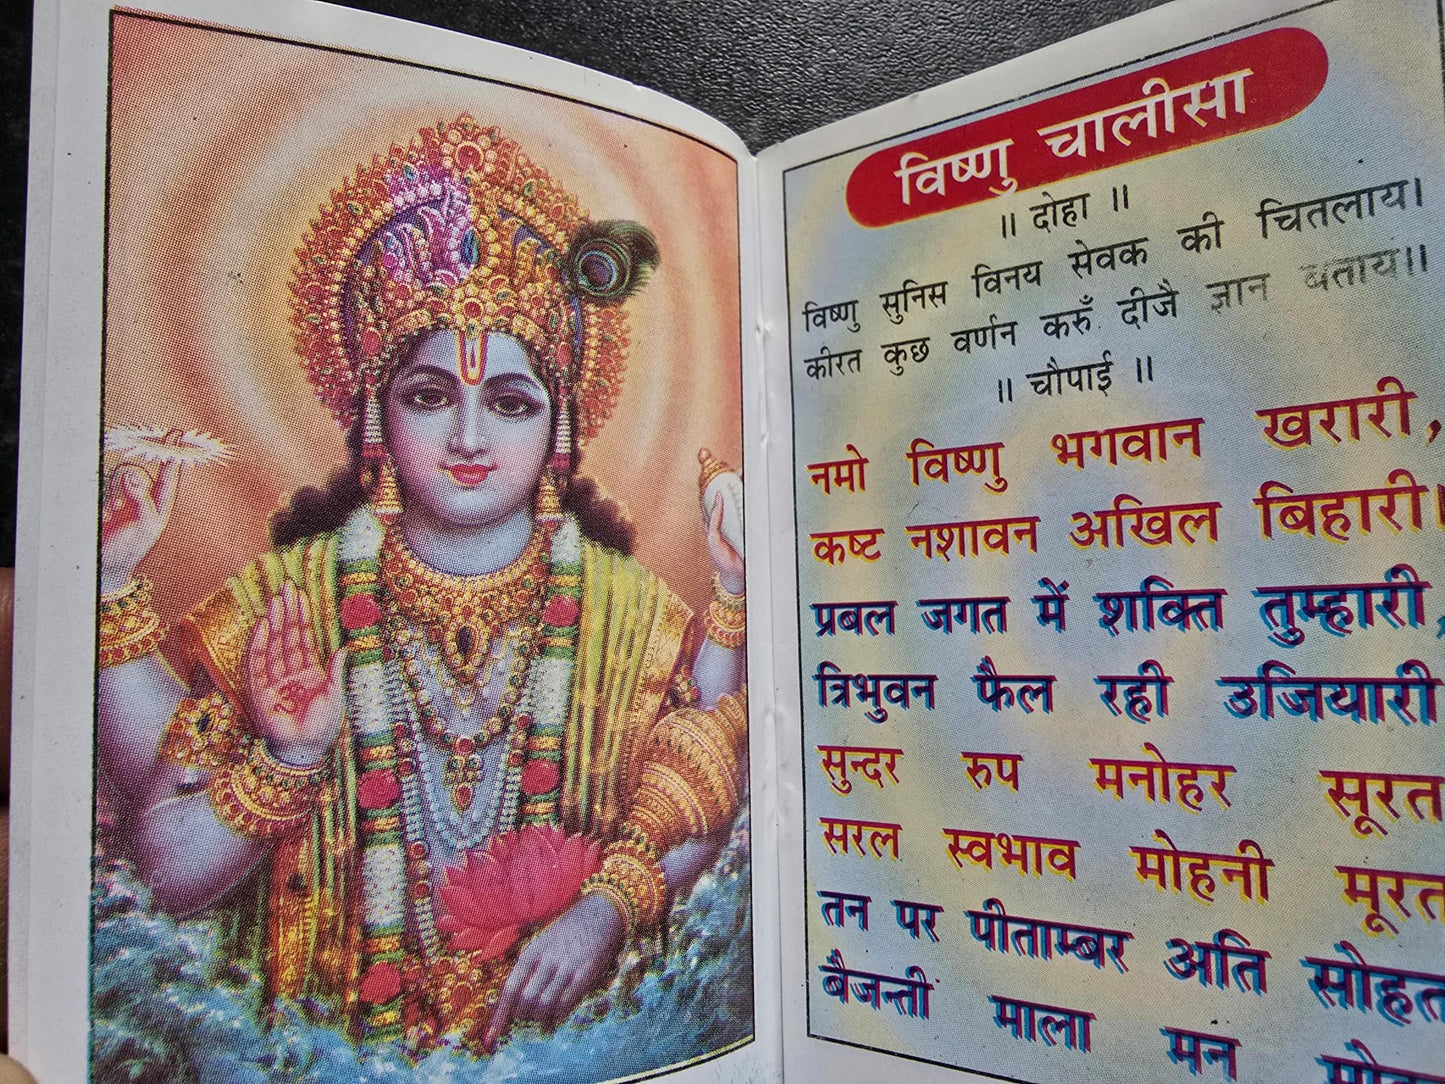 विष्णु चालीसा
॥ दोहा ॥
विष्णु सुनिस विनय सेवक की चितलाय।
कीरत कुछ वर्णन करुँ दीजै ज्ञान बताय॥
॥ चौपाई ॥
नमो विष्णु भगवान खरारी,
कष्ट नशावन अखिल बिहारी।
प्रबल जगत में शक्ति तुम्हारी,
त्रिभुवन फैल रही उजियारी
सुन्दर रुप मनोहर सूरत
सरल स्वभाव मोहनी मूरत
तन पर पीताम्बर अति सोहत
बैजन्ती माला मन